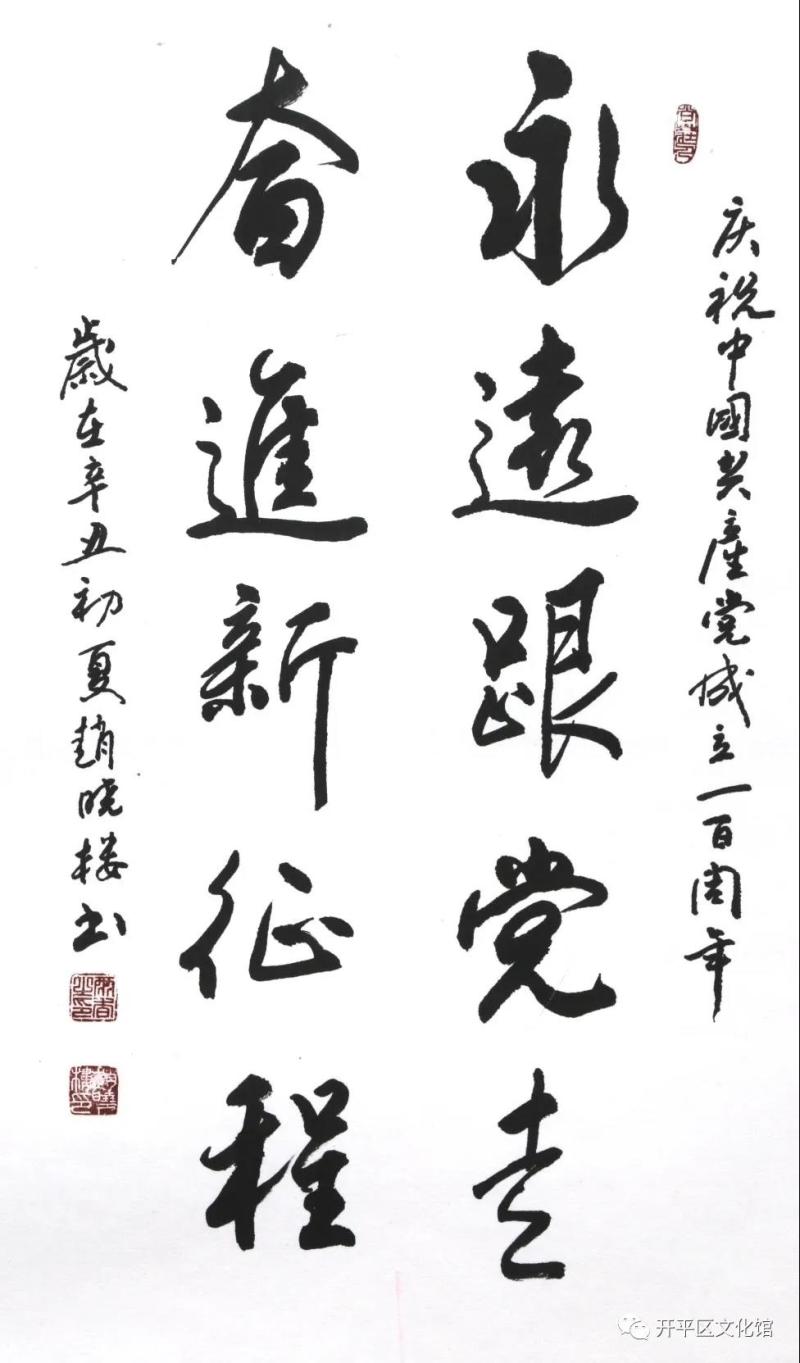 庆祝中國共產党成立一百周年
永遠跟党走
奋進新征程
歲在辛丑初夏趙晓楼书
开平区文化馆